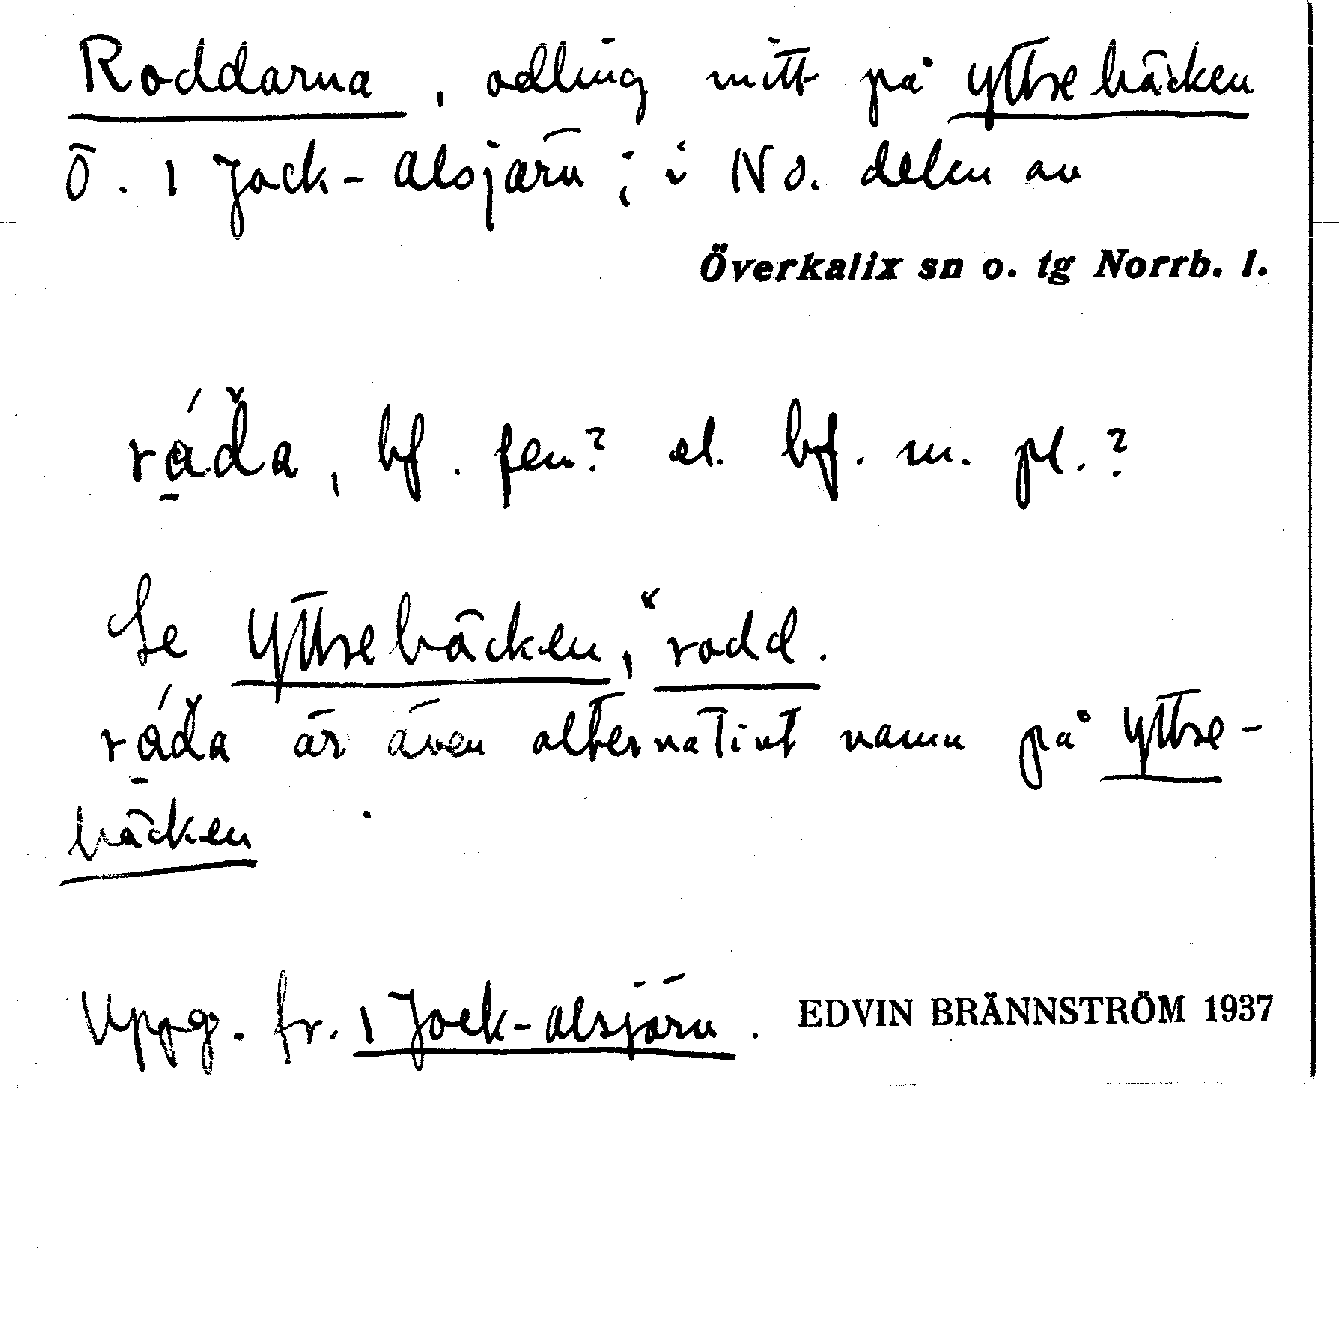 Roddarna, odling mitt på Yttrebäcken
Ö. 1 Jock-Alsjärv; i NO. delen av
Överkalix sn o. tg Norrb. l.
råđa, bf. fem? el. bf. m. pl.?
Se Yttrebäcken, rodd.
råđa är även alternativt namn på Yttre-
bäcken
Uppg. fr. 1 Jock-Alsjärv. EDVIN BRÄNNSTRÖM 1937